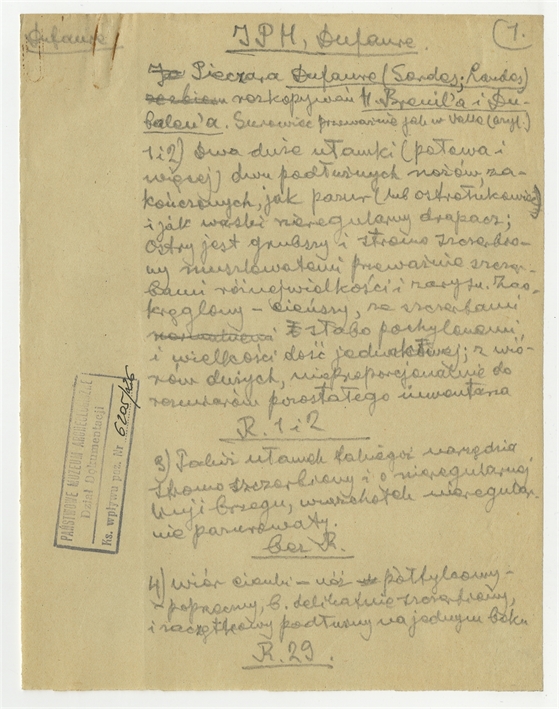 Dufaure
(1.
IPH, Dufaure.
Pieczara Dufaure (Sordes, Landes)
rozkopywań H. Breuil'a i Du-
balen'a. Surowiec przeważnie jak w Valle (aryl.)
1 i 2) Dwa duże ułamki (połowa i
więcej) dwu podłużnych nożów, za-
kończonych, jak pazur (lub ostrołukowiec)
i jak wąski nieregularny drapacz;
Ostry jest grubszy i stromo szczerbio-
ny muszlowatemi przeważnie szczer-
bami różnej wielkości i zarysu. Zao-
krąglony – cieńszy, ze szczerbami
słabo pochylonemi
i wielkości dość jednakowej; z wió-
rów dużych, nieproporcjonalnie do
rozmiarów pozostałego inwentarza
R. 1 i 2
3) Takiż ułamek takiegoż narzędzia
stromo szczerbiony i o nieregularnej
linji brzegu, wierzchołek nieregular-
nie pazurowaty.
bez R.
4) wiór cienki – nóż półtylcowy-
poprzeczny, b. delikatnie szczerbiony,
i zaczątkowy podłużny na jednym boku
R. 29.
PAŃSTWOWE MUZEUM ARCHEOLOGICZNE
Dział Dokumentacji
Ks. wpływu poz. Nr